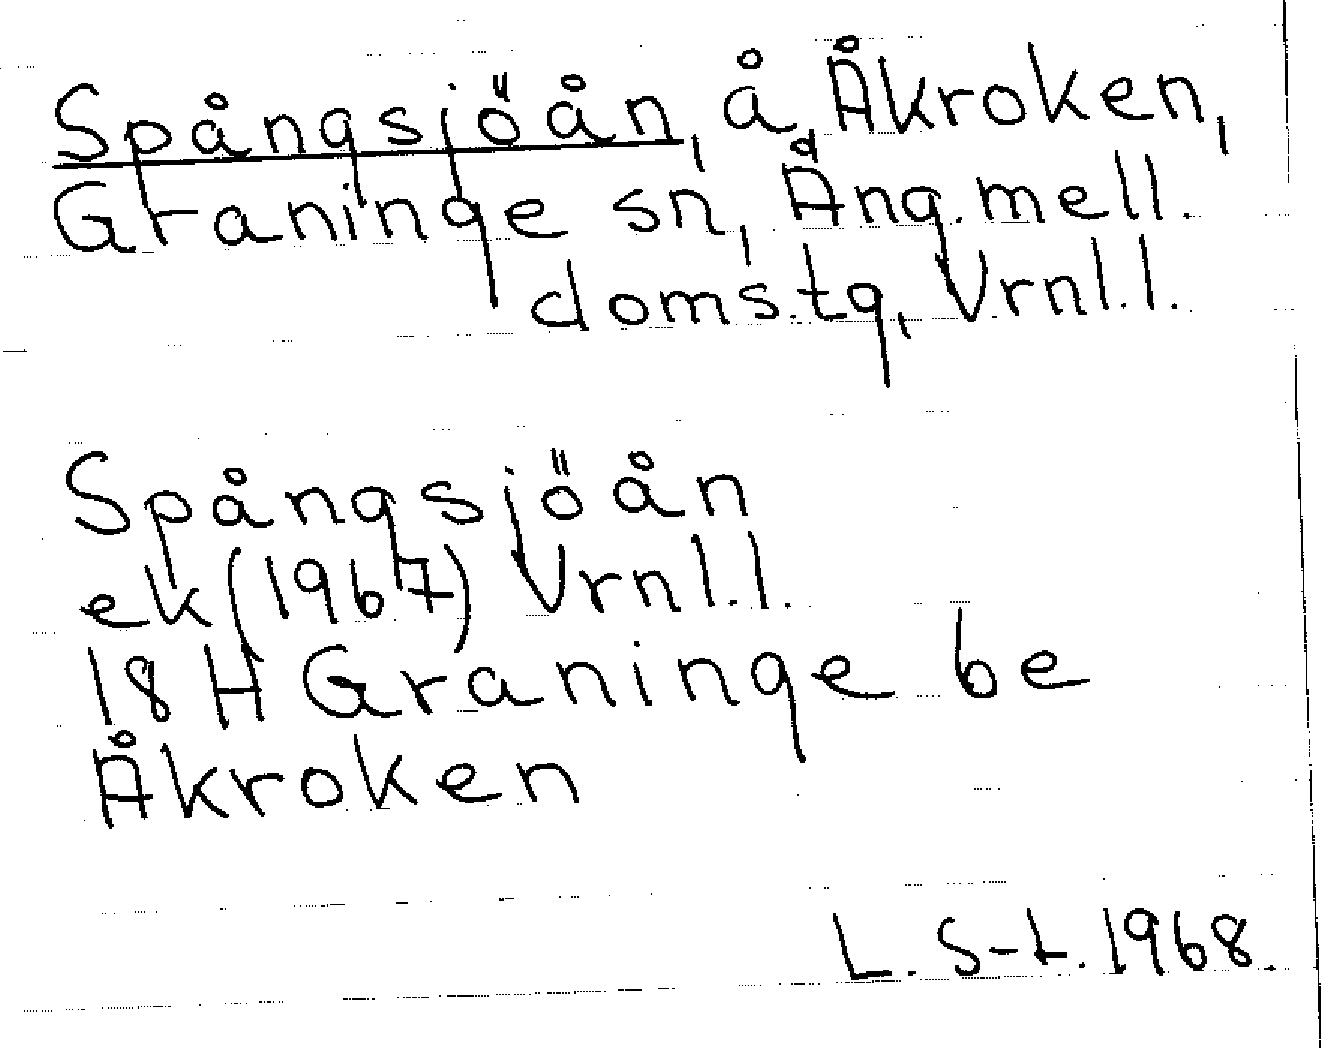 Spångsjöån, å, Åkroken,
Graninge sn, Ång. mell.
doms.tg, Vrnl.l.
Spångsjöån
ek (1967) Vrnl.l.
18 H Graninge be
Åkroken
L. S-L. 1968.